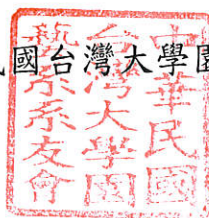 國台灣大學園
中華民國
台灣大學園
藝系系友會